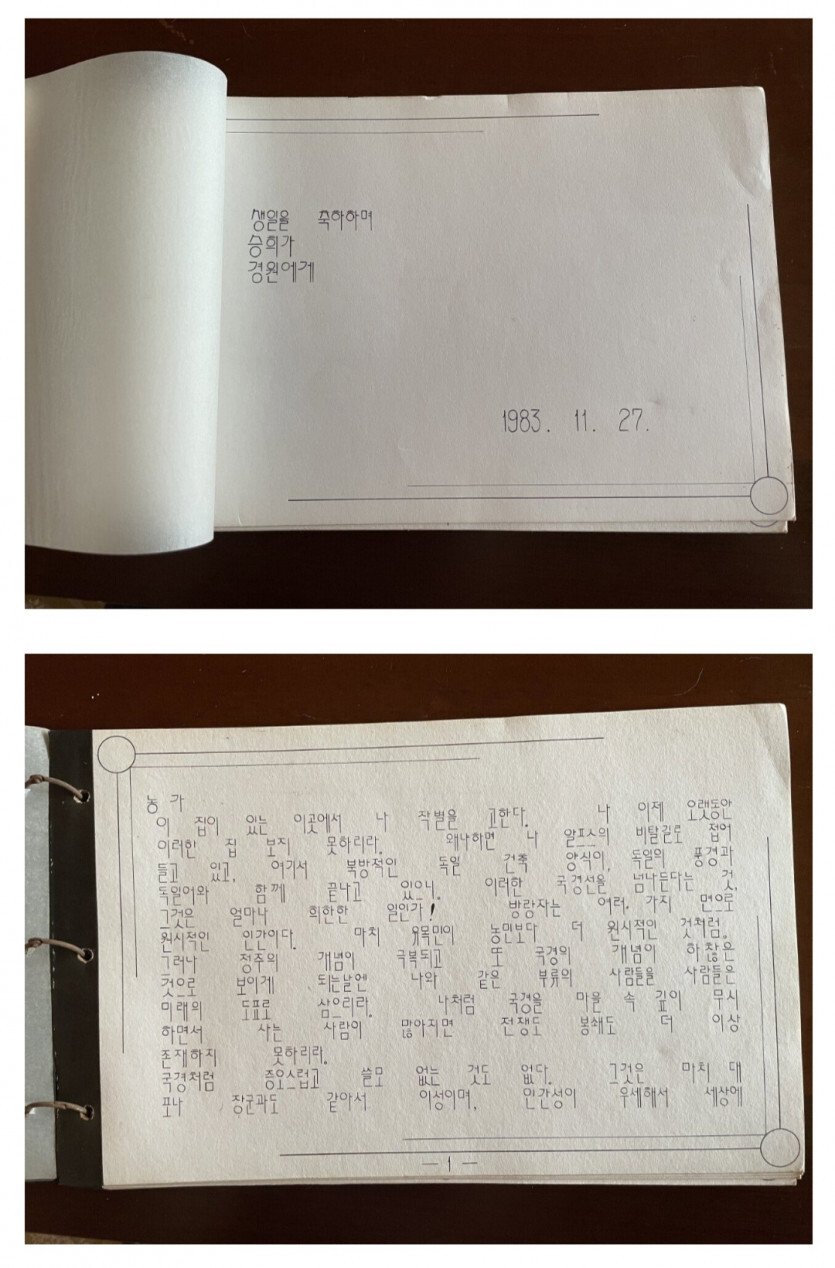 생일을 축하하며
승희가
경원에게
1983. 11. 27.
농가
이 집이 있는 이곳에서 나 작별을 고한다. 나 이제 오랫동안
이러한 집 보지 못하리라. 왜냐하면 나 알프스의 비탈길로 접어
들고 있고, 여기서 북방적인 독일 건축 양식이, 독일의 풍경과
독일어와 함께 끝나고 있으니. 이러한 국경선을 넘나든다는 것,
그것은 얼마나 희한한 일인가! 방랑자는 여러, 가지 면으로
원시적인 인간이다. 마치 유목민이 농민보다 더 원시적인 것처럼.
그러나 정주의 개념이 극복되고 또 국경의 개념이 하찮은
것으로 보이게 되는날엔 나와 같은 부류의 사람들을 사람들은
미래의 도표로 삼으리라. 나처럼 국경을 마음 속 깊이 무시
하면서 사는 사람이 많아지면 전쟁도 봉쇄도 더 이상
존재하지 못하리라.
국경처럼 증오스럽고 쓸모 없는 것도 없다. 그것은 마치 대
포나 장군과도 같아서 이성이며, 인간성이 우세해서 세상에
— 1 —